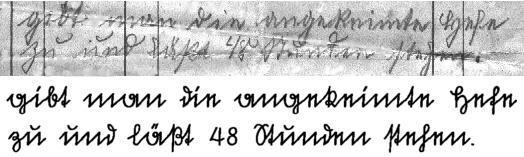 gibt man die angekeimte Hefe
zu und läßt 48 Stunden stehen.
gibt man die angekeimte Hefe
zu und läßt 48 Stunden stehen.